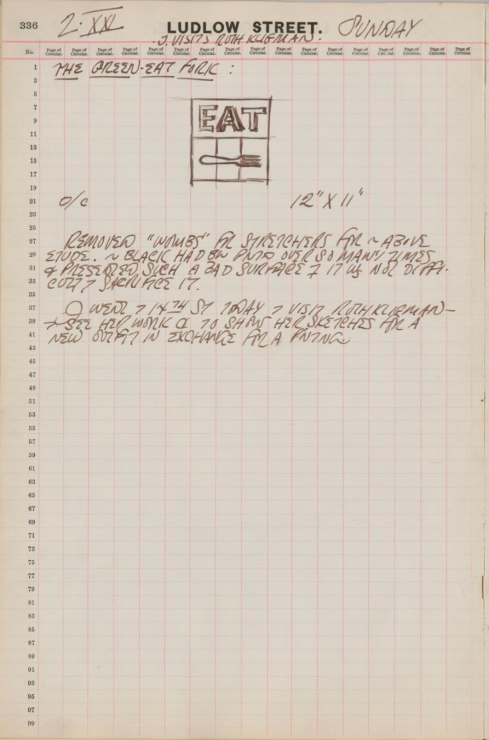 336
2·XXI
LUDLOW STREET.
SUNDAY
J. VISITS RUTH KLIGMAN:
No. Page of Circular. Page of Circular. Page of Circular. Page of Circular. Page of Circular. Page of Circular. Page of Circular. Page of Circular. Page of Circular. Page of Circular. Page of Circular. Page of Circular. Page of Circular. Page of Circular. Page of Circular. Page of Circular. Page of Circular.
1 THE GREEN-EAT FORK :
3
5
7
9 EAT
11
13
15
17
19
21 O/C 12" X 11"
23
25
27 REMOVED "WOMBS" FR STRETCHERS FOR ~ ABOVE
29 ETUDE. ~ BLACK HAD BN PNTD OVER SO MANY TIMES
31 & PRESENTED SUCH A BAD SURFACE IT WS NOT DIFFI-
33 CULT SACRIFICE IT.
35
37 WENT 14TH ST TODAY VISIT RUTH KLIGMAN—
39 SEE HER WORK TO SHOW HER SKETCHES FOR A
41 NEW OUTFIT IN EXCHANGE FOR A PNTNG
43
45
47
49
51
53
55
57
59
61
63
65
67
69
71
73
75
77
79
81
83
85
87
89
91
93
95
97
99